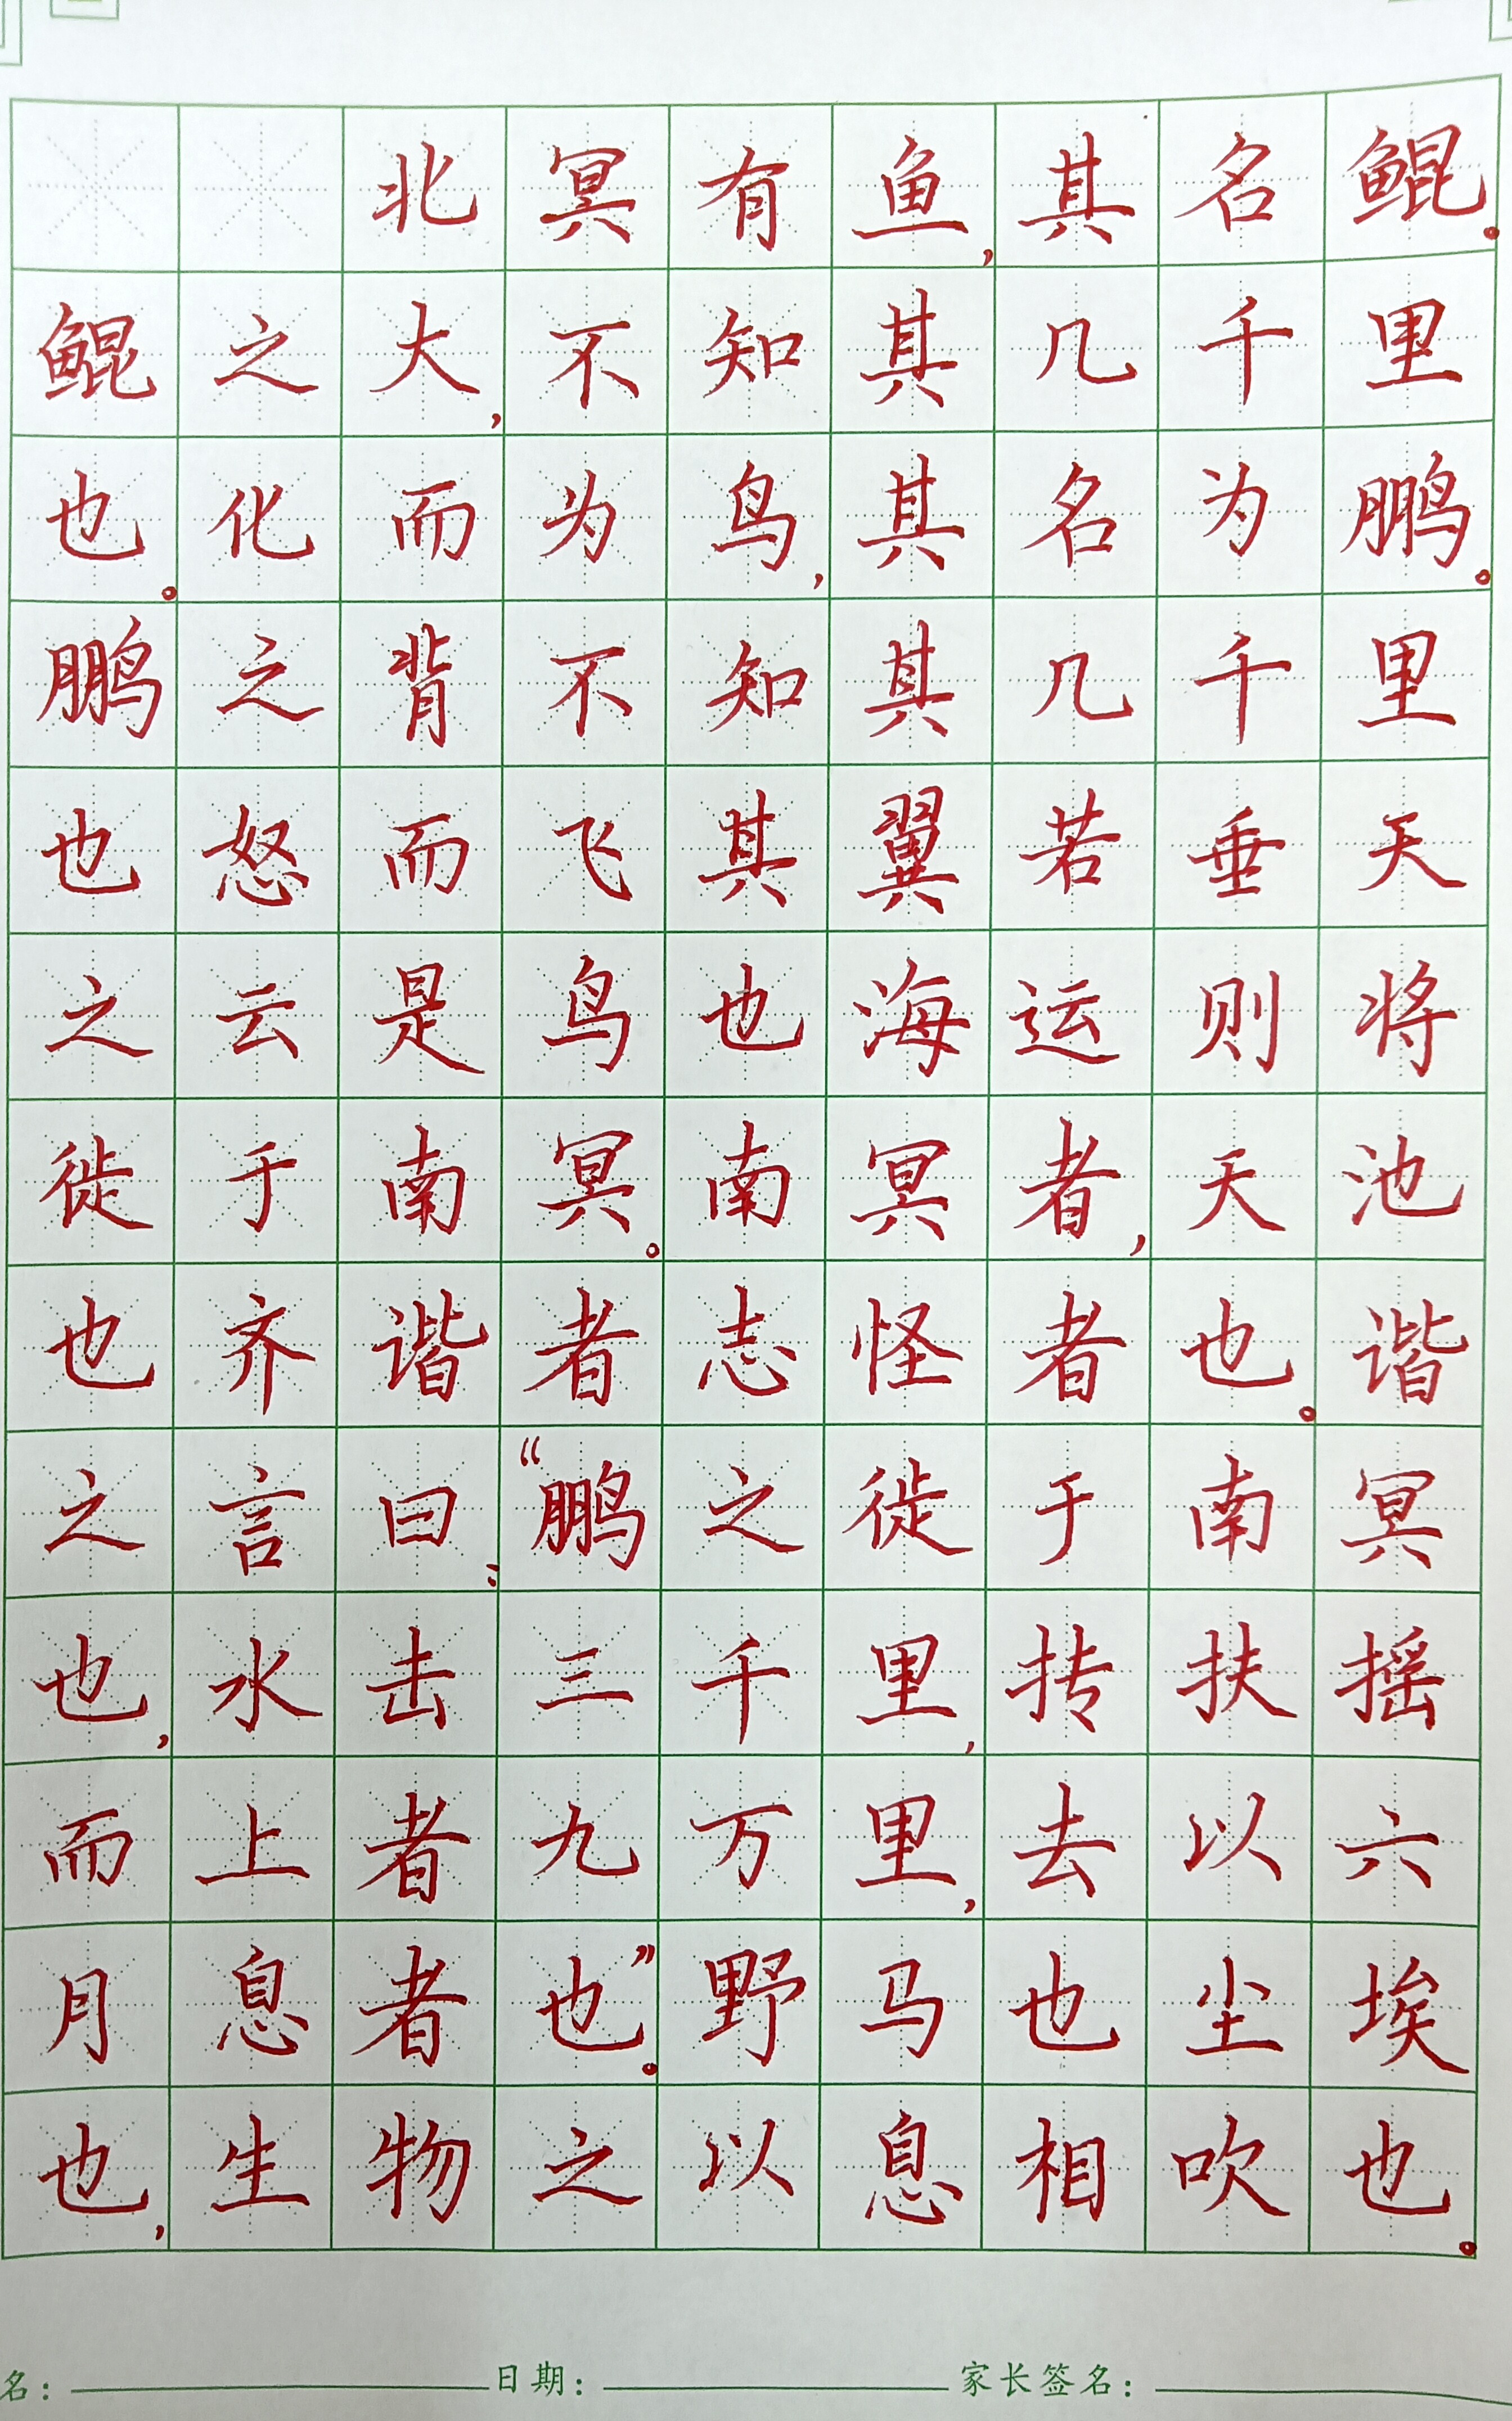 北冥有鱼,其名鲲。
鲲之大,不知其几千里
也。化而为鸟,其名为鹏。
鹏之背不知其几千里
也怒而飞其翼若垂天
之云是鸟也海运则将
徙于南冥。南冥者,天池
也齐谐者志怪者也。谐
之言曰:“鹏之徙于南冥
也,水击三千里,抟扶摇
而上者九万里,去以六
月息者也。”野马也尘埃
也,生物之以息相吹也。
名: 日期: 家长签名: